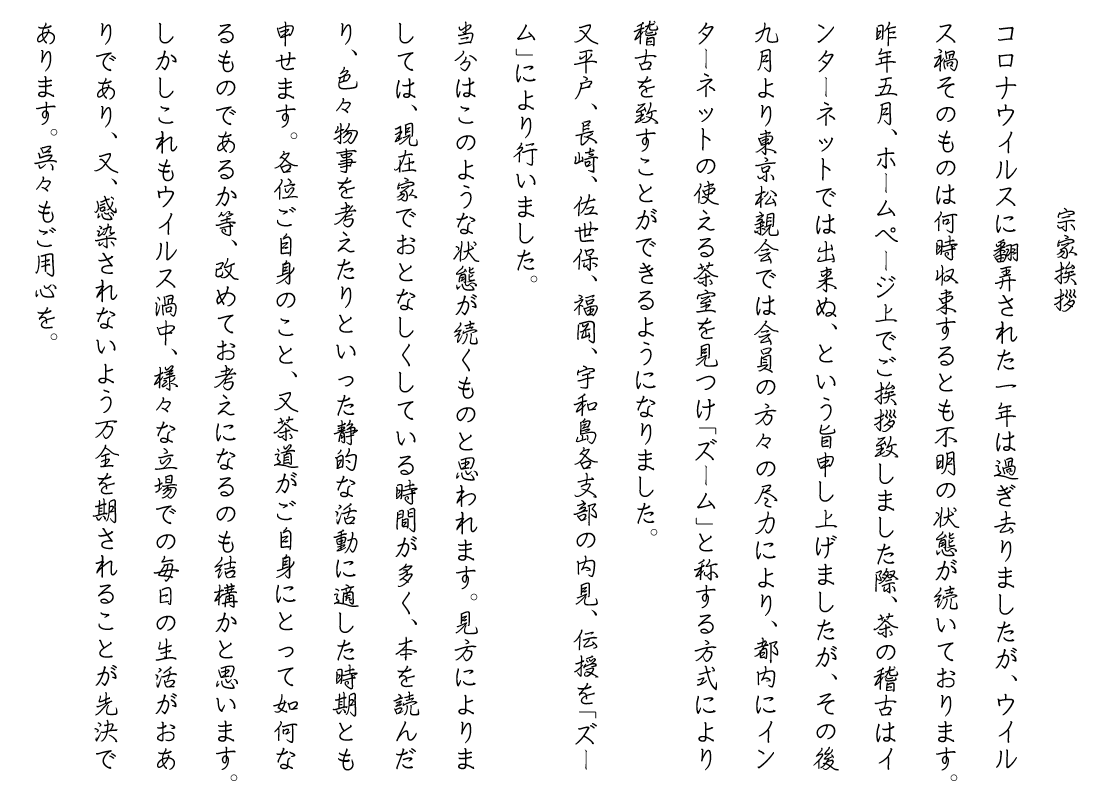 宗家挨拶
コロナウイルスに翻弄された一年は過ぎ去りましたが、ウイル
ス禍そのものは何時収束するとも不明の状態が続いております。
昨年五月、ホームページ上でご挨拶致しました際、茶の稽古はイ
ンターネットでは出来ぬ、という旨申し上げましたが、その後
九月より東京松親会では会員の方々の尽力により、都内にイン
ターネットの使える茶室を見つけ「ズーム」と称する方式により
稽古を致すことができるようになりました。
又平戸、長崎、佐世保、福岡、宇和島各支部の内見、伝授を「ズー
ム」により行いました。
当分はこのような状態が続くものと思われます。見方によりま
しては、現在家でおとなしくしている時間が多く、本を読んだ
り、色々物事を考えたりといった静的な活動に適した時期とも
申せます。各位ご自身のこと、又茶道がご自身にとって如何な
るものであるか等、改めてお考えになるのも結構かと思います。
しかしこれもウイルス渦中、様々な立場での毎日の生活がおあ
りであり、又、感染されないよう万全を期されることが先決で
あります。呉々もご用心を。